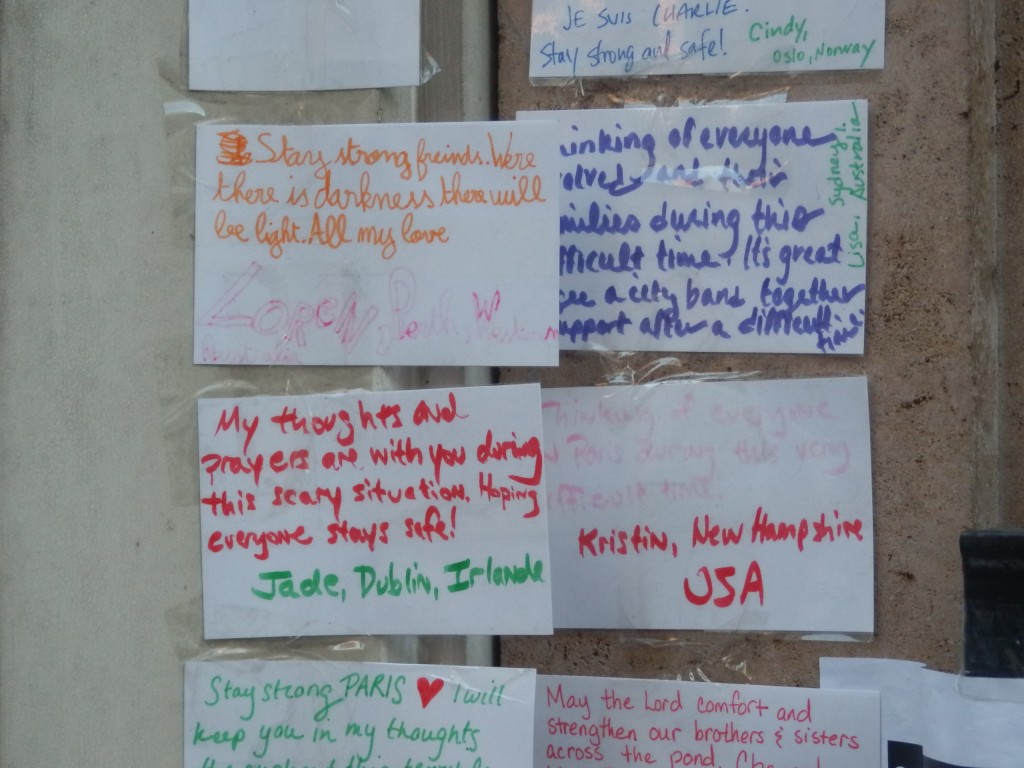 JE SUIS CHARLIE.
Stay strong and safe!
Cindy,
Oslo, Norway
Stay strong freinds. Were
there is darkness there will
be light. All my love
Loren, Perth, Western
Australia
inking of everyone
olved and their
milies during this
fficult time. It's great
see a city band together
upport after a difficult
time
Lisa, Sydney,
Australia
My thoughts and
prayers are with you during
this scary situation. Hoping
everyone stays safe!
Jade, Dublin, Irlande
Thinking of everyone
n Paris during this very
ifficult time.
Kristin, New Hampshire
USA
Stay strong PARIS ♥ I will
keep you in my thoughts
May the Lord comfort and
strengthen our brothers & sisters
across the pond.